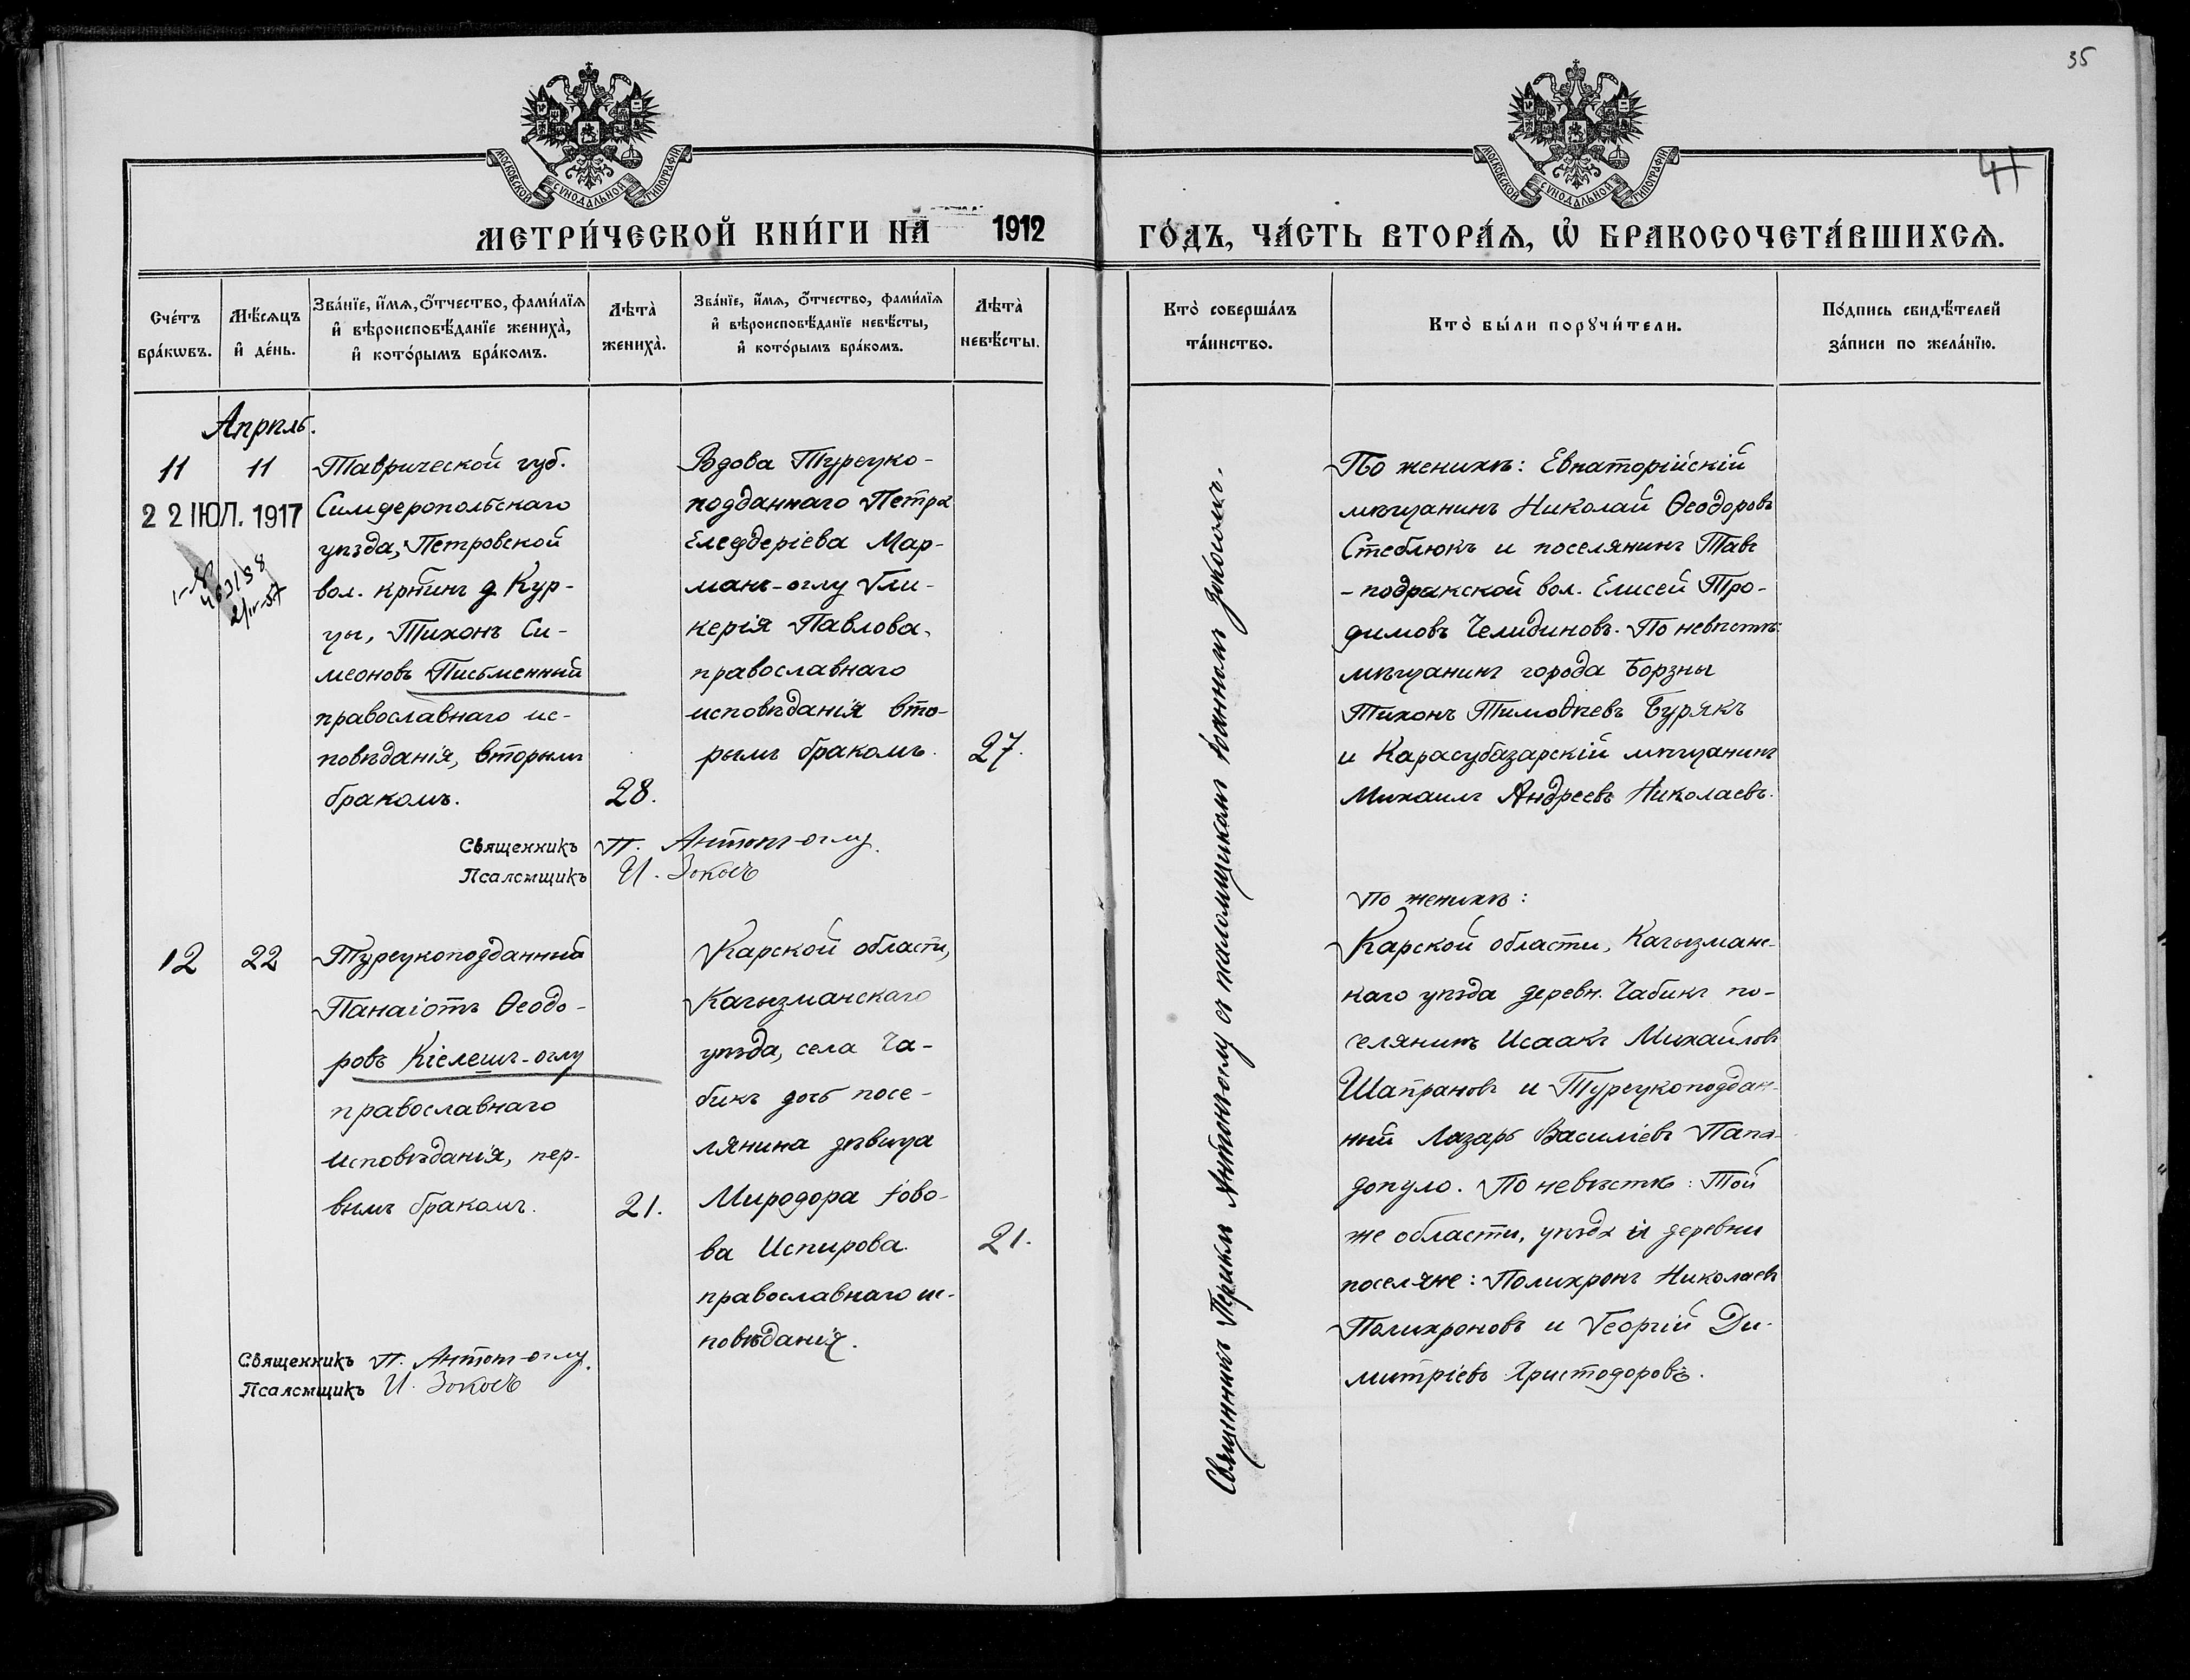 35
41
МОСКОВСКОЙ СѴНОДАЛЬНОЙ ТИПОГРАФІИ
МОСКОВСКОЙ СѴНОДАЛЬНОЙ ТИПОГРАФІИ
МЕТРИ́ЧЕСКОЙ КНИ́ГИ НА 1912
ГО́ДЪ, ЧА́СТЬ ВТОРА́Ѧ, Ѡ БРАКОСОЧЕТА́ВШИХСѦ.
Сче́тъ
бра́кѡвъ.
Мѣ́сѧцъ
и҆ де́нь.
Зва́нїе, и҆́мѧ, ѻ҆́тчество, фами́лїѧ
и҆ вѣроисповѣ́данїе жениха̀,
и҆ кото́рымъ бра́комъ.
Лѣта̀
жениха̀.
Зва́нїе, и҆́мѧ, ѻ҆́тчество, фами́лїѧ
и҆ вѣроисповѣ́данїе невѣ́сты,
и҆ кото́рымъ бра́комъ.
Лѣта̀
невѣ́сты.
Кто̀ соверша́лъ
та́инство.
Кто̀ бы́ли порꙋчи́тели.
По́дпись свидѣ́телей
за́писи по жела́нїю.
Апрѣль.
11
11
22 ІЮЛ. 1917
Таврической губ.
Симферопольскаго
уѣзда, Петровской
вол. крѣтинъ д. Кур-
цы, Тихонъ Си-
меоновъ Письменный
православнаго ис-
повѣданія, вторымъ
бракомъ.
28.
Вдова Турецко-
подданнаго Петра
Елефферіева Мар-
манъ-оглу Гли-
керія Павлова,
православнаго
исповѣданія вто-
рымъ бракомъ.
27.
Священникъ П. Антонъ-оглу.
Псаломщикъ И. Зокосъ
Священникъ Периклъ Антонъ-оглу съ псаломщикомъ Іоанномъ Зокосомъ.
По женихѣ: Евпаторійскій
мѣщанинъ Николай Ѳеодоровъ
Стеблюкъ и поселянинъ Тавъ
-подракской вол. Елисей Тро-
фимовъ Челидиновъ. По невѣстѣ:
мѣщанинъ города Борзны
Тихонъ Тимоѳеевъ Бурякъ
и Карасубазарскій мѣщанинъ
Михаилъ Андреевъ Николаевъ.
12
22
Турецкоподданный
Панаіотъ Ѳеодо-
ровъ Кіелешъ-оглу
православнаго
исповѣданія, пер-
вымъ бракомъ.
21.
Карской области,
Кагызманскаго
уѣзда, села Ча-
бикъ дочь посе-
лянина дѣвица
Миродора Іово-
ва Испирова.
православнаго ис-
повѣданія.
21.
Священникъ П. Антонъ-оглу.
Псаломщикъ И. Зокосъ
По женихѣ:
Карской области, Кагызманс-
каго уѣзда деревн. Чабикъ по-
селянинъ Исаакъ Михайловъ
Шапрановъ и Турецкоподдан-
ный Лазарь Василіевъ Папа-
допуло. По невѣстѣ: Той
же области, уѣзда и деревни
поселяне: Полихронъ Николаевъ
Полихроновъ и Георгій Ди-
митріевъ Христодоровъ.